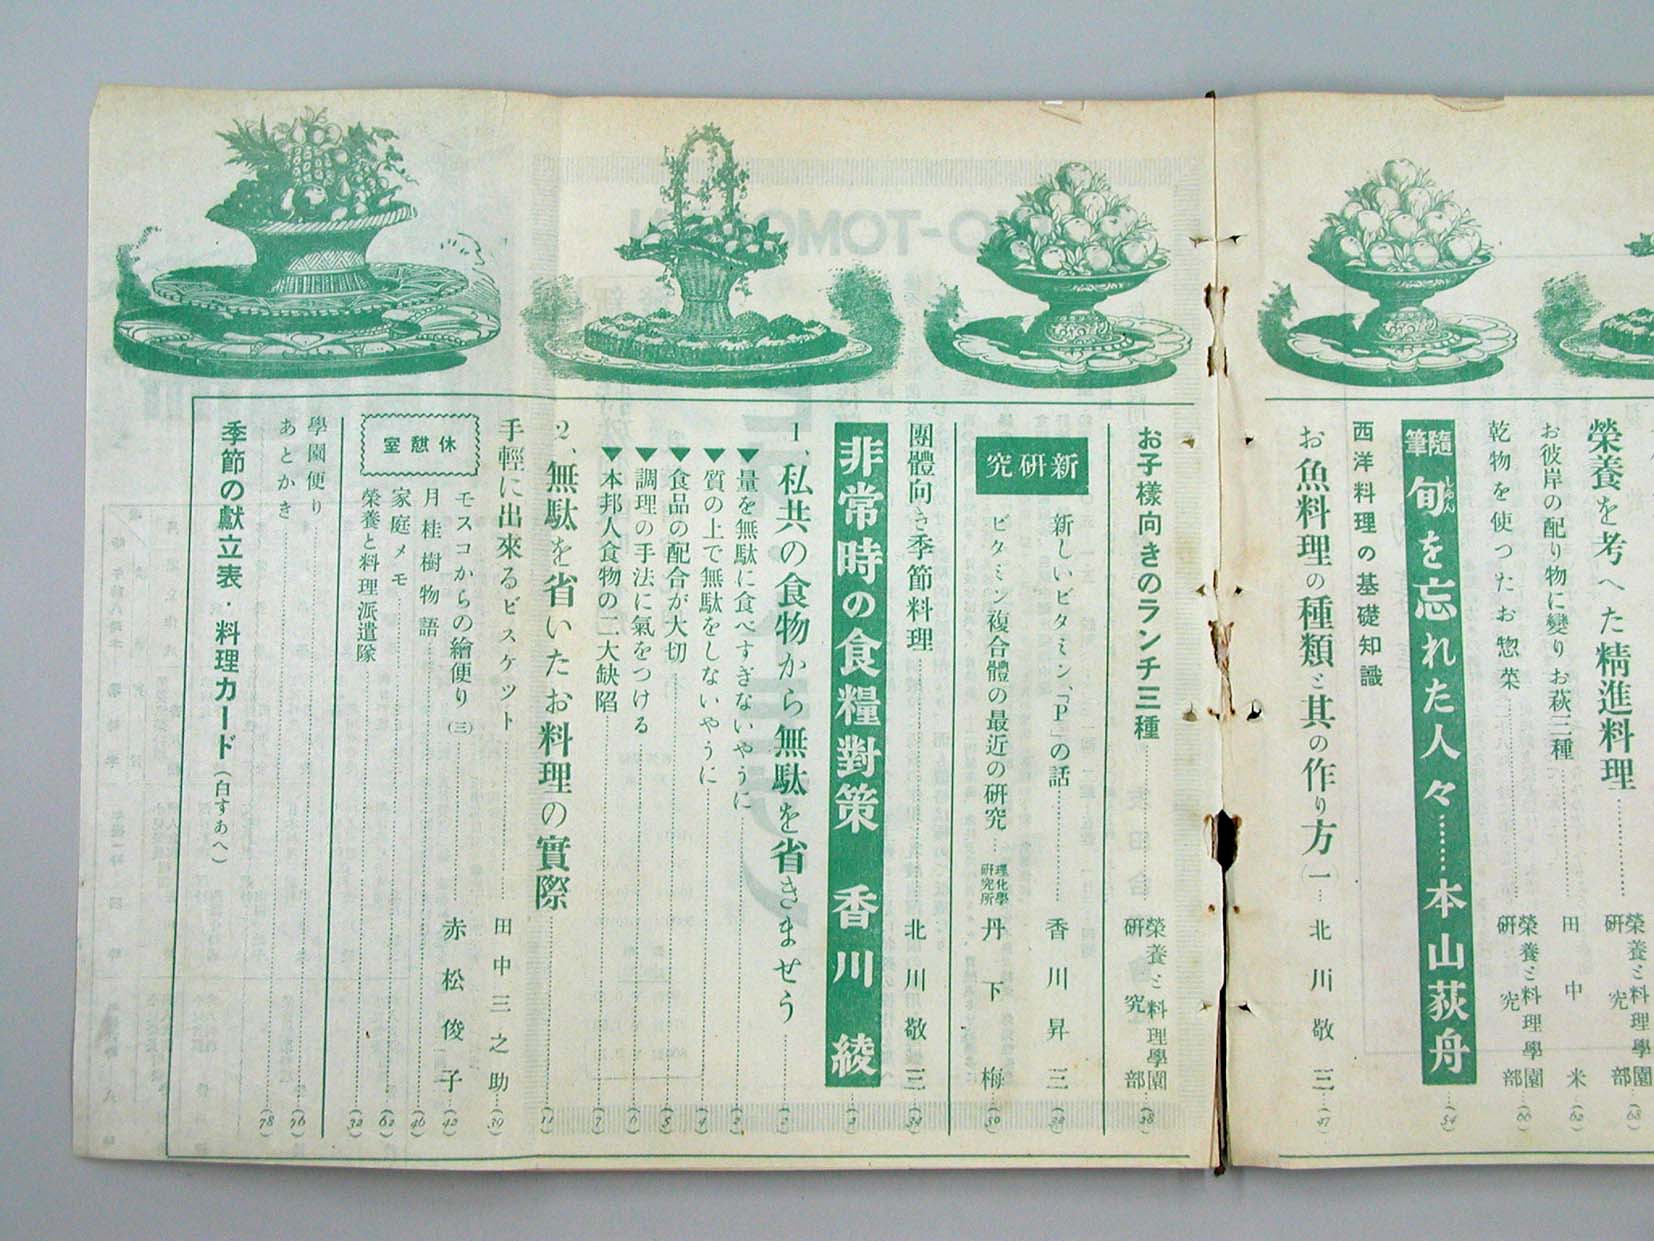 榮養を考へた精進料理
榮養と料理學園
研究部
(68)
お彼岸の配り物に變りお萩三種
田中米
(62)
乾物を使つたお惣菜
榮養と料理學園
研究部
(66)
隨筆
旬を忘れた人々
しゆん
本山荻舟
(54)
西洋料理の基礎知識
お魚料理の種類と其の作り方(一)
北川敬三
(47)
お子樣向きのランチ三種
榮養と料理學園
研究部
(38)
新研究
新しいビタミン、「P」の話
香川昇三
ビタミン複合體の最近の研究
理化學
研究所
丹下梅
(30)
團體向き季節料理
北川敬三
非常時の食糧對策 香川綾
(2)
1、私共の食物から無駄を省きませう
(2)
▼量を無駄に食べすぎないやうに
(2)
▼質の上で無駄をしないやうに
(4)
▼食品の配合が大切
(5)
▼調理の手法に氣をつける
(6)
▼本邦人食物の二大缺陷
(7)
2、無駄を省いたお料理の實際
(11)
手輕に出來るビスケツト
田中三之助
(39)
休憩室
モスコからの繪便り(三)
赤松俊子
(42)
月桂樹物語
(46)
家庭メモ
(62)
榮養と料理派遣隊
(32)
學園便り
(76)
あとかき
(78)
季節の獻立表・料理カード(白すあへ)